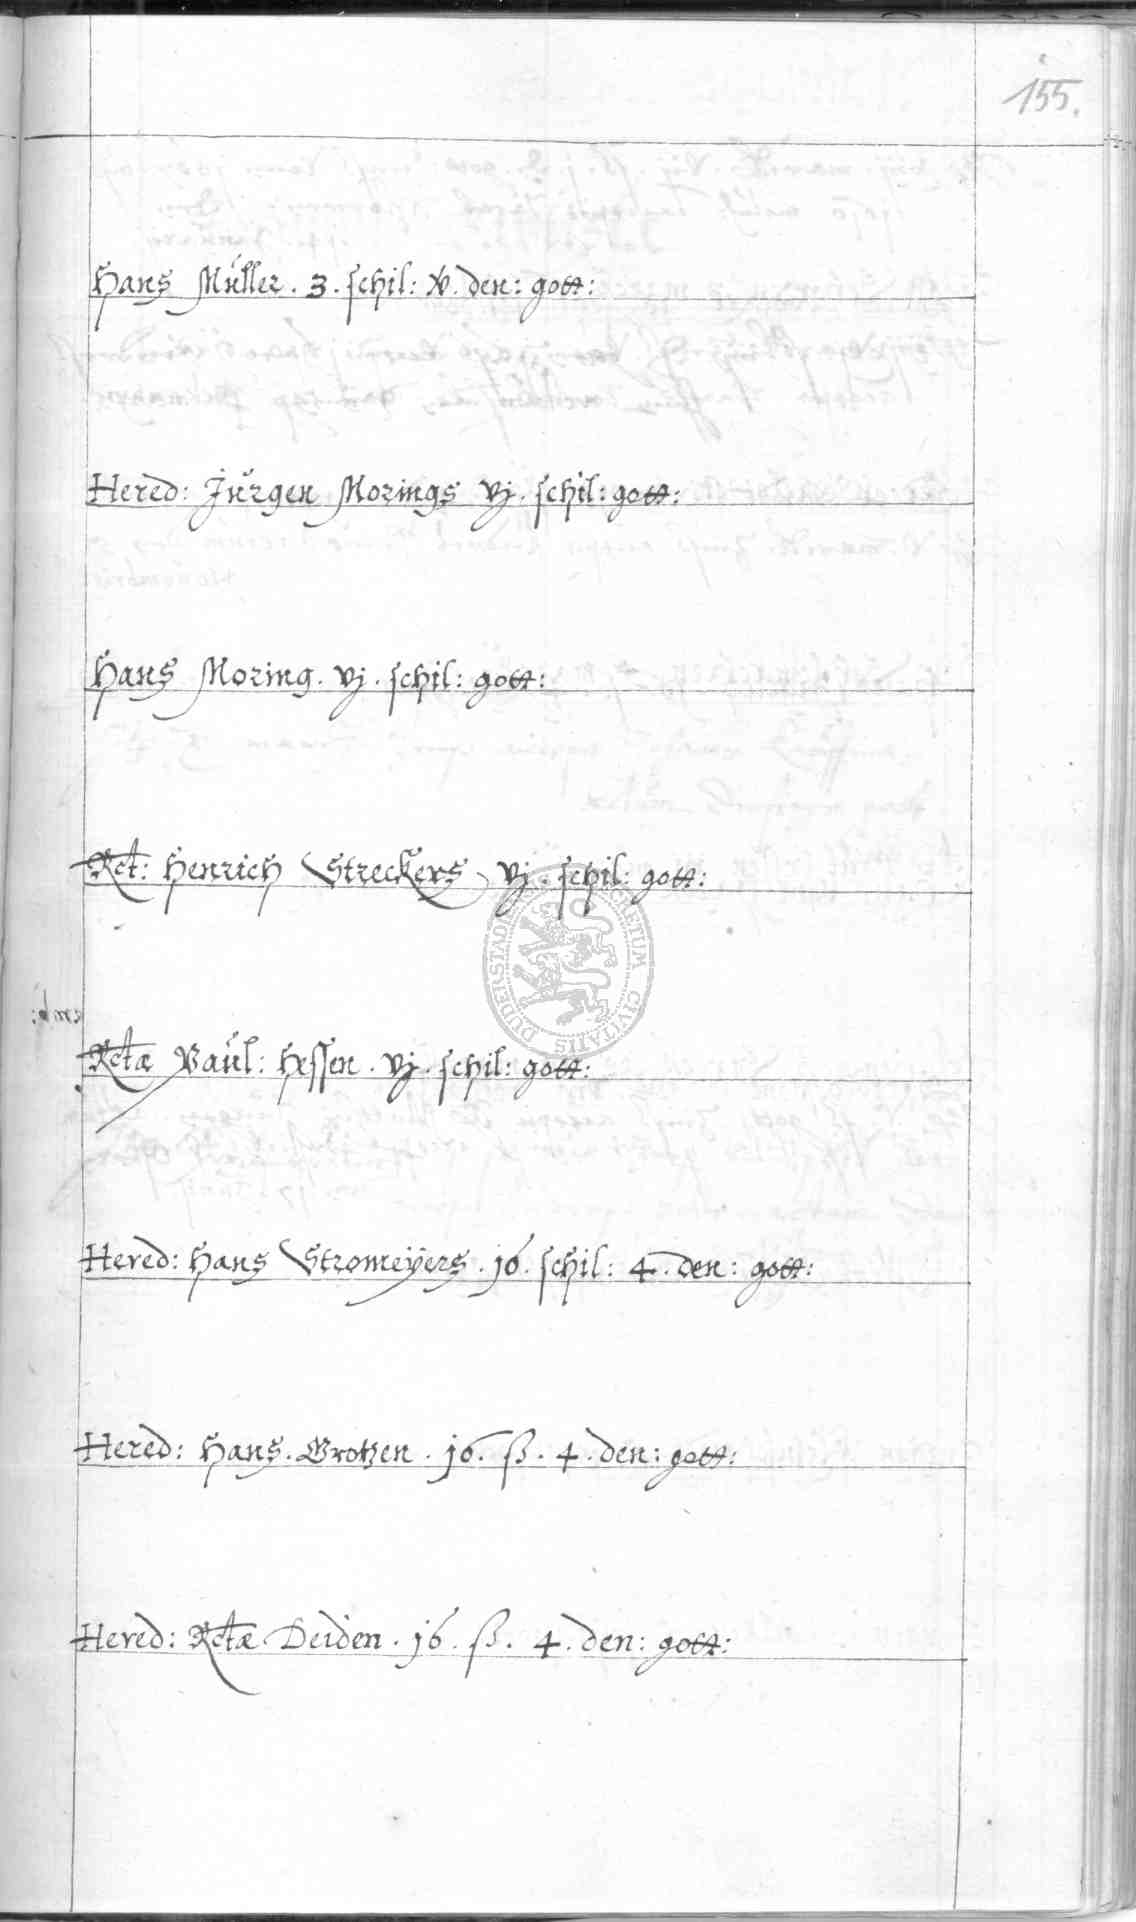 155.
Hans Müller . 3 . schil: v. den: gott:
Hered: Jürgen Morings vj . schil: gott:
Hans Moring . vj . schil: gott:
Rct: Henrich Streckers vj . schil: gott:
Rctæ Paul: Hessen . vj . schil: gott:
Hered: Hans Stromeÿers . 16 . schil: 4 . den: gott:
Hered: Hans . Grotzen . 16 . ß . 4 . den: gott:
Hered: Rctæ Deiden . 16 . ß . 4 . den: gott:
DUDERSTADENSIS SECRETUM CIVITATIS